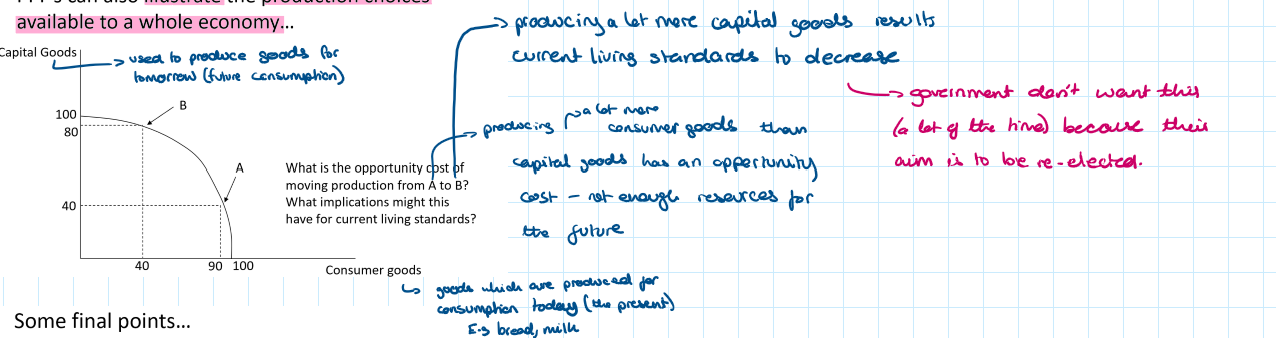 PPF's can also illustrate the production choices
available to a whole economy...
Capital Goods
used to produce goods for
tomorrow (future consumption)
100
80
40
B
A
40
90
100
Consumer goods
What is the opportunity cost of
moving production from A to B?
What implications might this
have for current living standards?
producing a lot more capital goods results
current living standards to decrease
government don't want this
(a lot of the time) because their
aim is to be re-elected.
producing a lot more
consumer goods than
capital goods has an oppertunity
cost – not enough resources for
the future
goods which are produced for
consumption today (the present)
E.g bread, milk
Some final points...